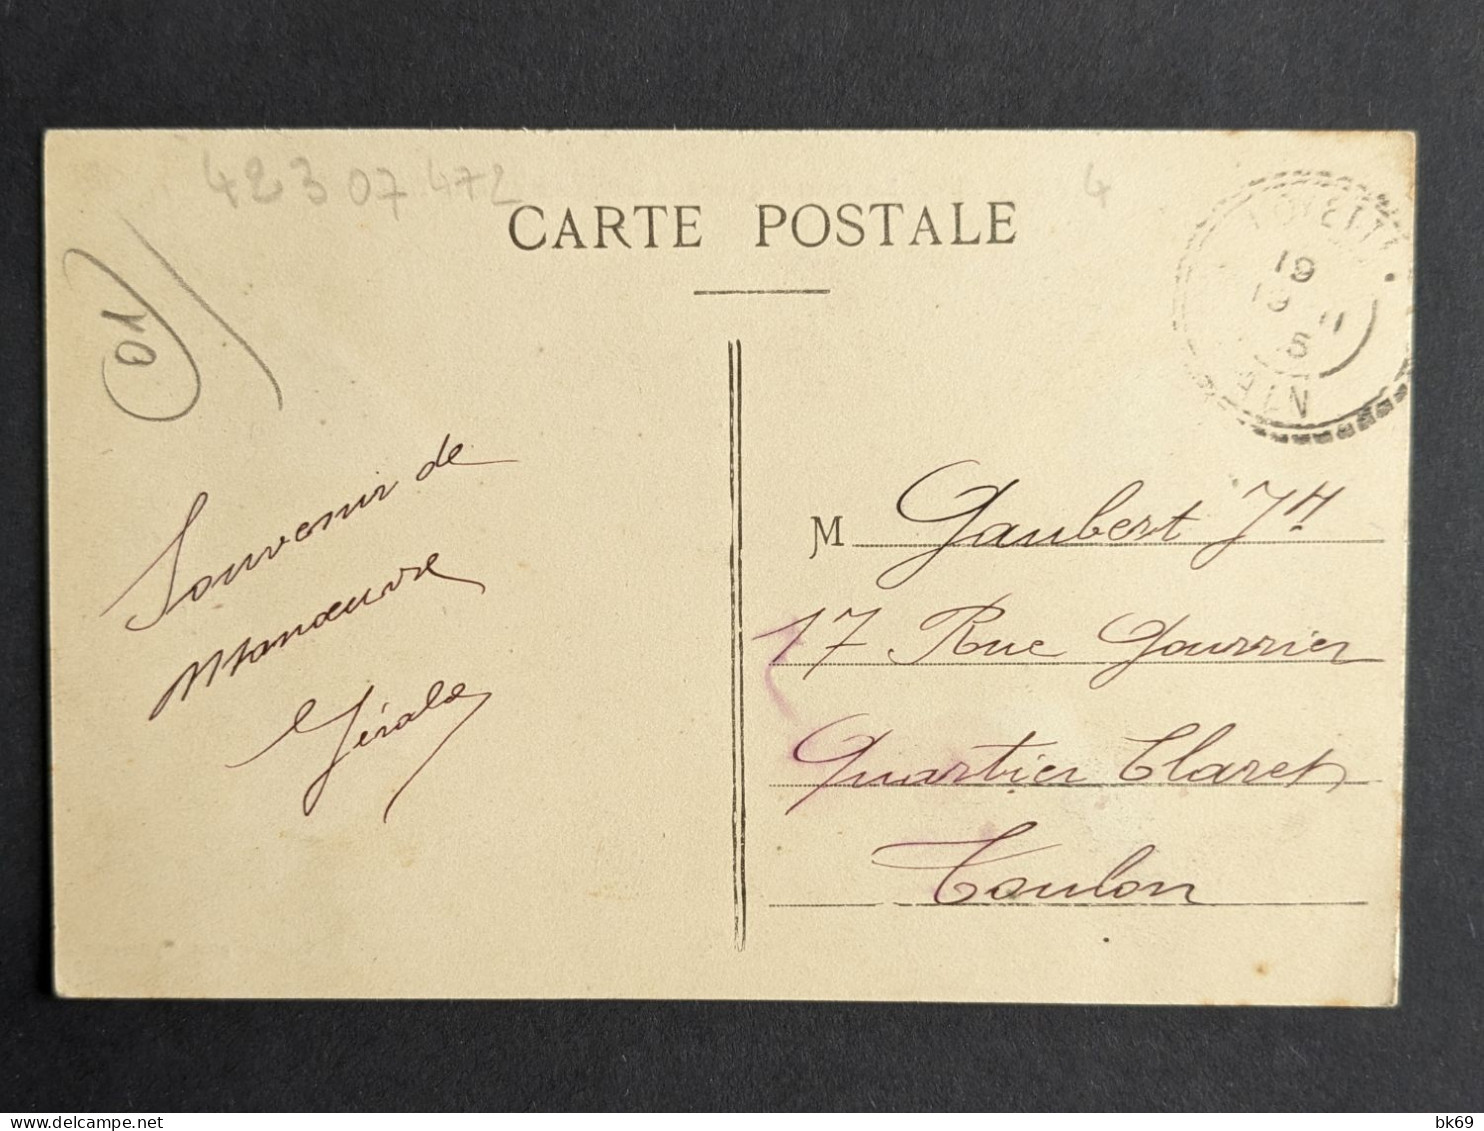 42307472
4
CARTE POSTALE
19
19 11
5
AIN
01
Souvenir de
Manœuvre
M Gaubert Jh
17 Rue Gourrier
Quartier Claret
Toulon
bk69